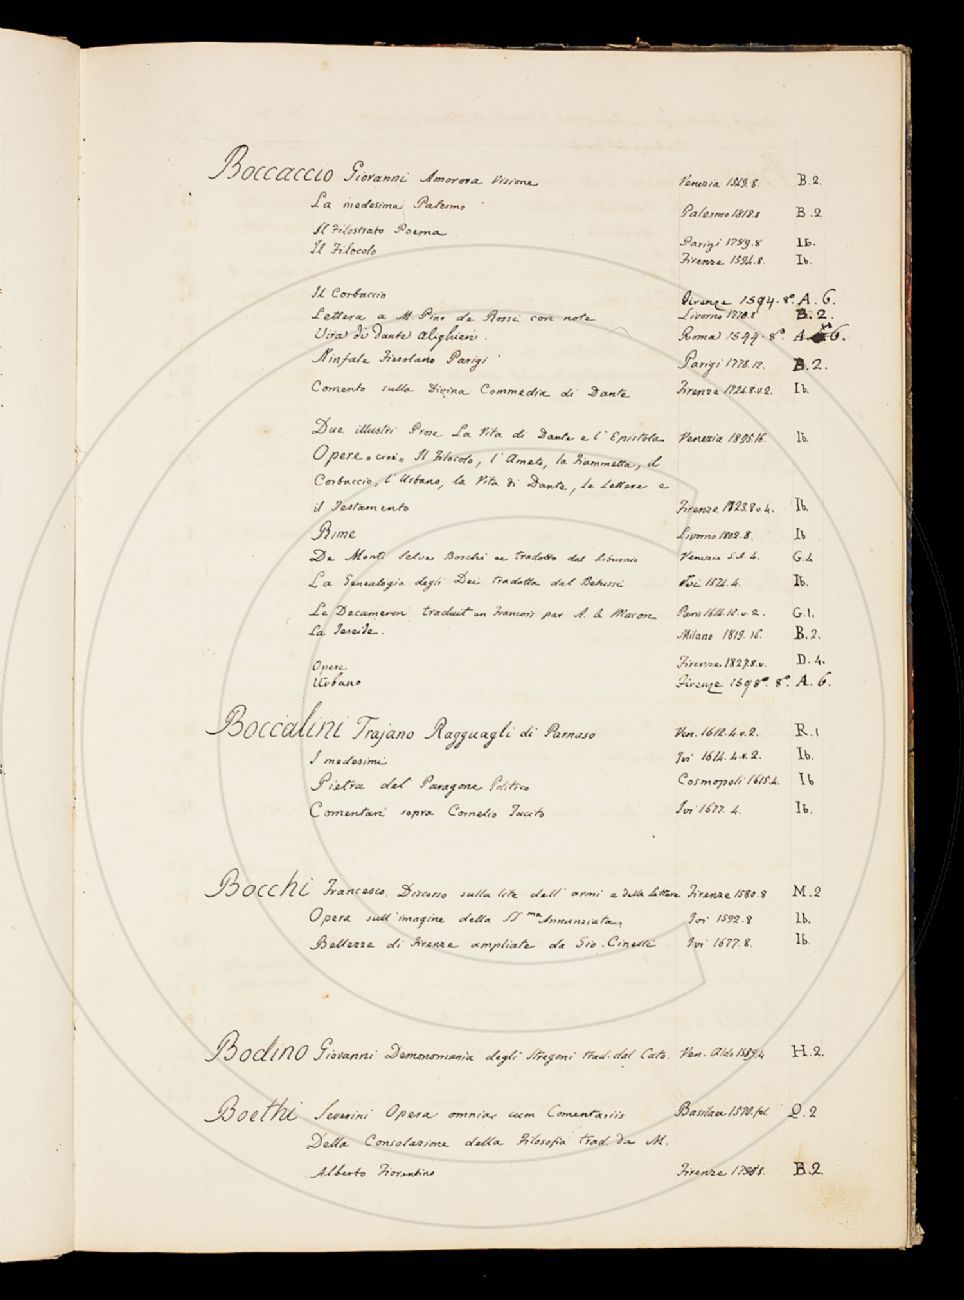 Boccaccio Giovanni Amorora Visione Venezia 1549.8. B.2.
La medesima Palermo Palermo 1818.8 B.2
Il Filostrato Poema Parigi 1789.8 Ib.
Il Filocolo Firenze 1594.8. Ib.
Il Corbaccio Firenze 1594.8º. A.6.
Lettera a M. Pino de Rossi con note Livorno 1770.8 B.2.
Vita di Dante Alighieri. Roma 1544.8º A 6.
Ninfale Fiesolano Parigi Parigi 1778.12. B.2.
Comento sulla Divina Commedia di Dante Firenze 1724.8.v.2. Ib.
Due illustri Prose La Vita di Dante e l'Epistola Venezia 1825.16. Ib.
Opere cioè Il Filocolo, l'Ameto, la Fiammetta, il
Corbaccio, l'Urbano, la Vita di Dante, le Lettere e
il Testamento Firenze 1723.8.v.4. Ib.
Rime Livorno 1802.8. Ib
De Monti Selve Boschi ec tradotto dal Liburnio Venezia S.A. 4. G.4
La Genealogia degli Dei tradotta dal Betussi Ivi 1574.4. Ib.
Le Decameron traduit en Francois par A. le Macon Paris 1614.12.v.2. G.1.
La Teseide. Milano 1819.16. B.2.
Opere Firenze 1827.8.v. D.4.
Urbano Firenze 1598º.8º. A.6.
Boccalini Trajano Ragguagli di Parnaso Ven. 1612.4.v.2. R.1
I medesimi Ivi 1614.4.v.2. Ib.
Pietra del Paragone Politico Cosmopoli 1615.4. Ib
Comentari sopra Cornelio Tacito Ivi 1677.4. Ib.
Bocchi Francesco. Discorso sulla lite dell'armi e delle Lettere Firenze 1580.8 M.2
Opera sull'imagine della SS.ma Annunziata. Ivi 1592.8 Ib.
Bellezze di Firenze ampliate da Gio. Cinelli Ivi 1677.8. Ib.
Bodino Giovanni Demonomania degli Stregoni trad. dal Cato. Ven. Aldo 1589.4 H.2.
Boethi Severini Opera omnia cum Comentariis Basileae 1570.fol. Q.2
Della Consolazione della Filosofia trad. da M.
Alberto Fiorentino Firenze B.2